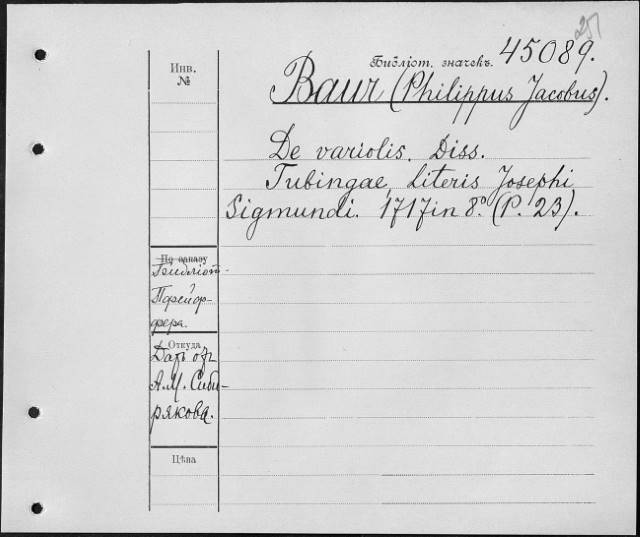 251
Библіот. значекъ. 45089.
Инв.
№
Baur (Philippus Jacobus).
De variolis. Diss.
Tubingae, Literis Josephi
Sigmundi. 1717 in 8.° (P. 23).
По заказу
Библіот-
Пфейф-
фера.
Откуда
Даръ отъ
А.М. Сиби-
рякова.
Цѣна